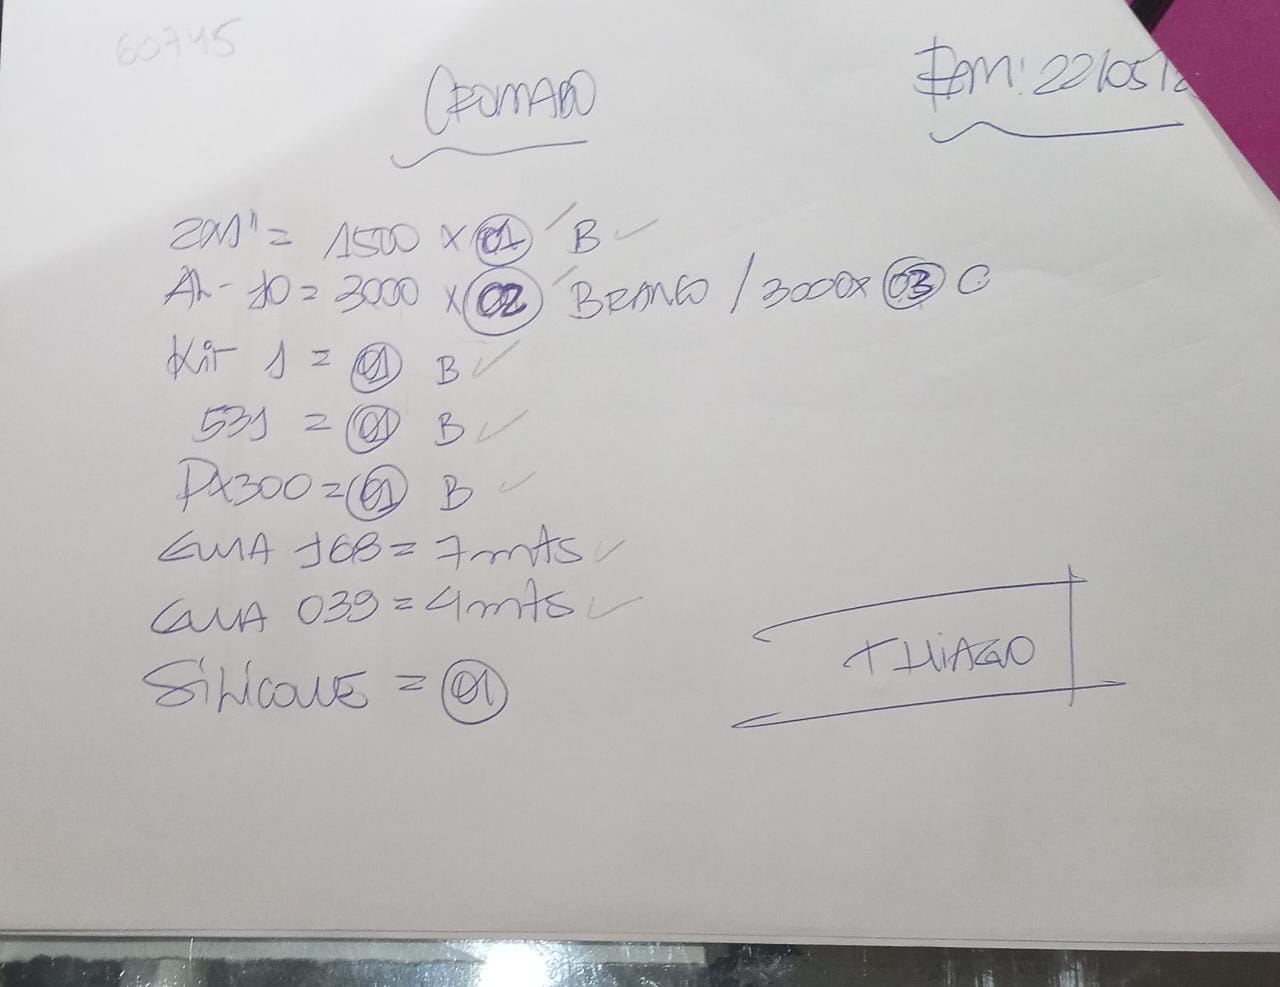 60745
CROMADO
EM: 22/05/2
201" = 1500 x 01 B
AL-10 = 3000 x 02 BRANCO / 3000x 03 C
Kit 1 = 01 B
531 = 01 B
PX300 = 01 B
GUIA 168 = 7 mts
GUIA 039 = 4 mts
SiLicONE = 01
THiAGO